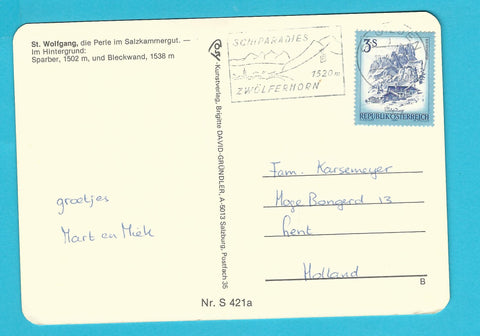 St. Wolfgang, die Perle im Salzkammergut. —
Im Hintergrund:
Sparber, 1502 m, und Bleckwand, 1538 m
groetjes
Mart en Miek
Cosy-Kunstverlag, Brigitte DAVID-GRÜNDLER, A-5013 Salzburg, Postfach 35
SCHIPARADIES
1520m
ZWÖLFERHORN
3S
REPUBLIK ÖSTERREICH
Fam. Karsemeyer
Hoge Bongerd 13
Lent
Holland
B
Nr. S 421a